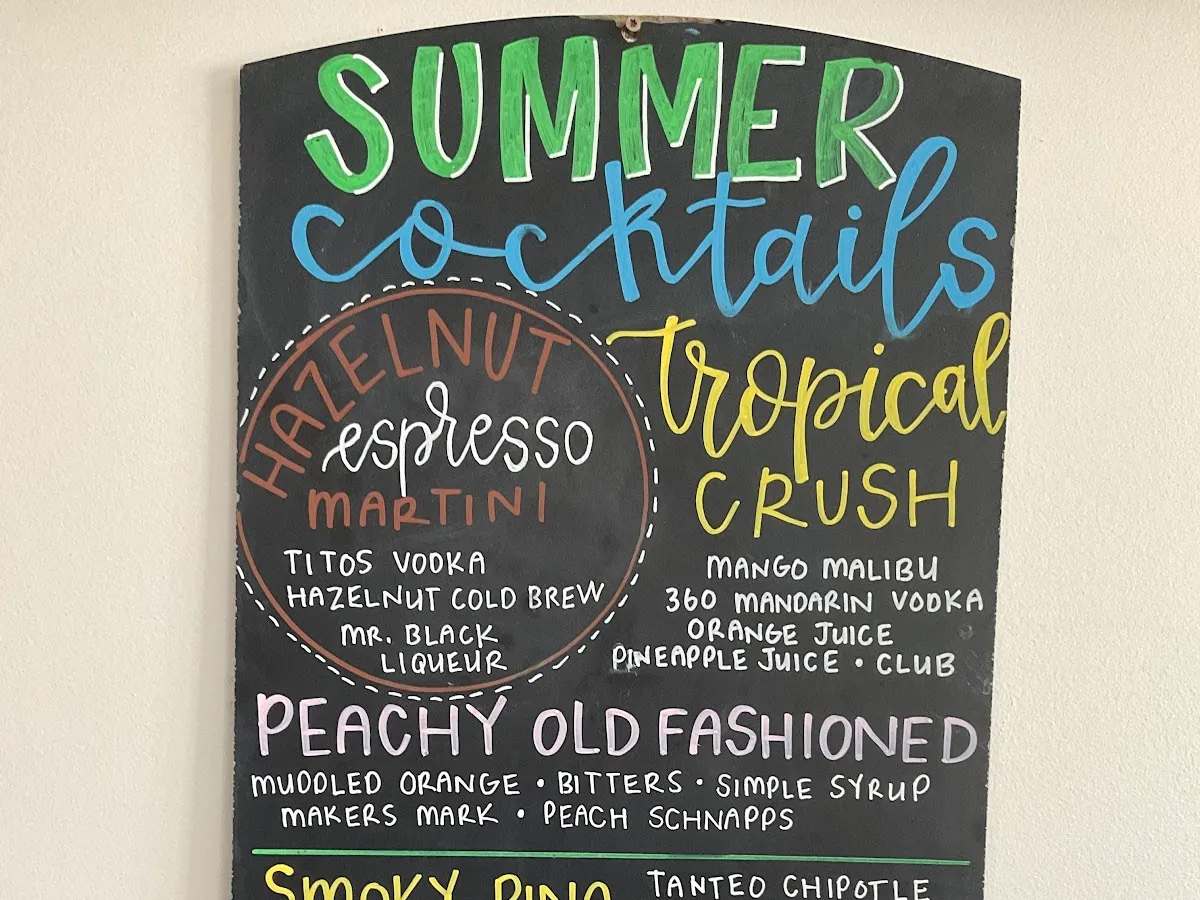 SUMMER
cocktails
HAZELNUT
espresso
MARTINI
TITOS VODKA
HAZELNUT COLD BREW
MR. BLACK
LIQUEUR
tropical
CRUSH
MANGO MALIBU
360 MANDARIN VODKA
ORANGE JUICE
PINEAPPLE JUICE • CLUB
PEACHY OLD FASHIONED
MUDDLED ORANGE • BITTERS • SIMPLE SYRUP
MAKERS MARK • PEACH SCHNAPPS
SMOKY PINA
TANTEO CHIPOTLE